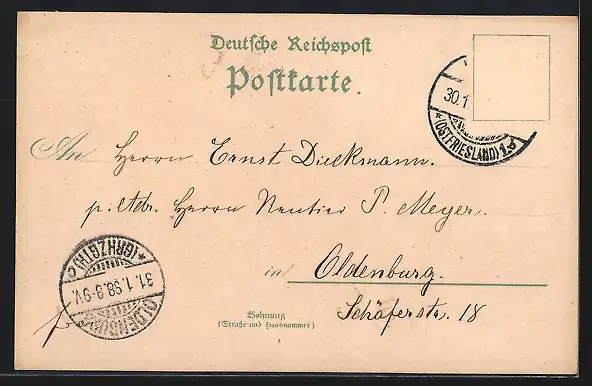 Deutsche Reichspost
Postkarte.
30.1
*(OSTFRIESLAND)1.a
An Herrn Ernst Dieckmann.
p. Adr. Herrn Rentier P. Meyer
in Oldenburg.
Schäferstr. 18
Wohnung
(Straße und Hausnummer)
OLDENBURG
31.1.98.8-9V.
*(GRHZGTH.)c